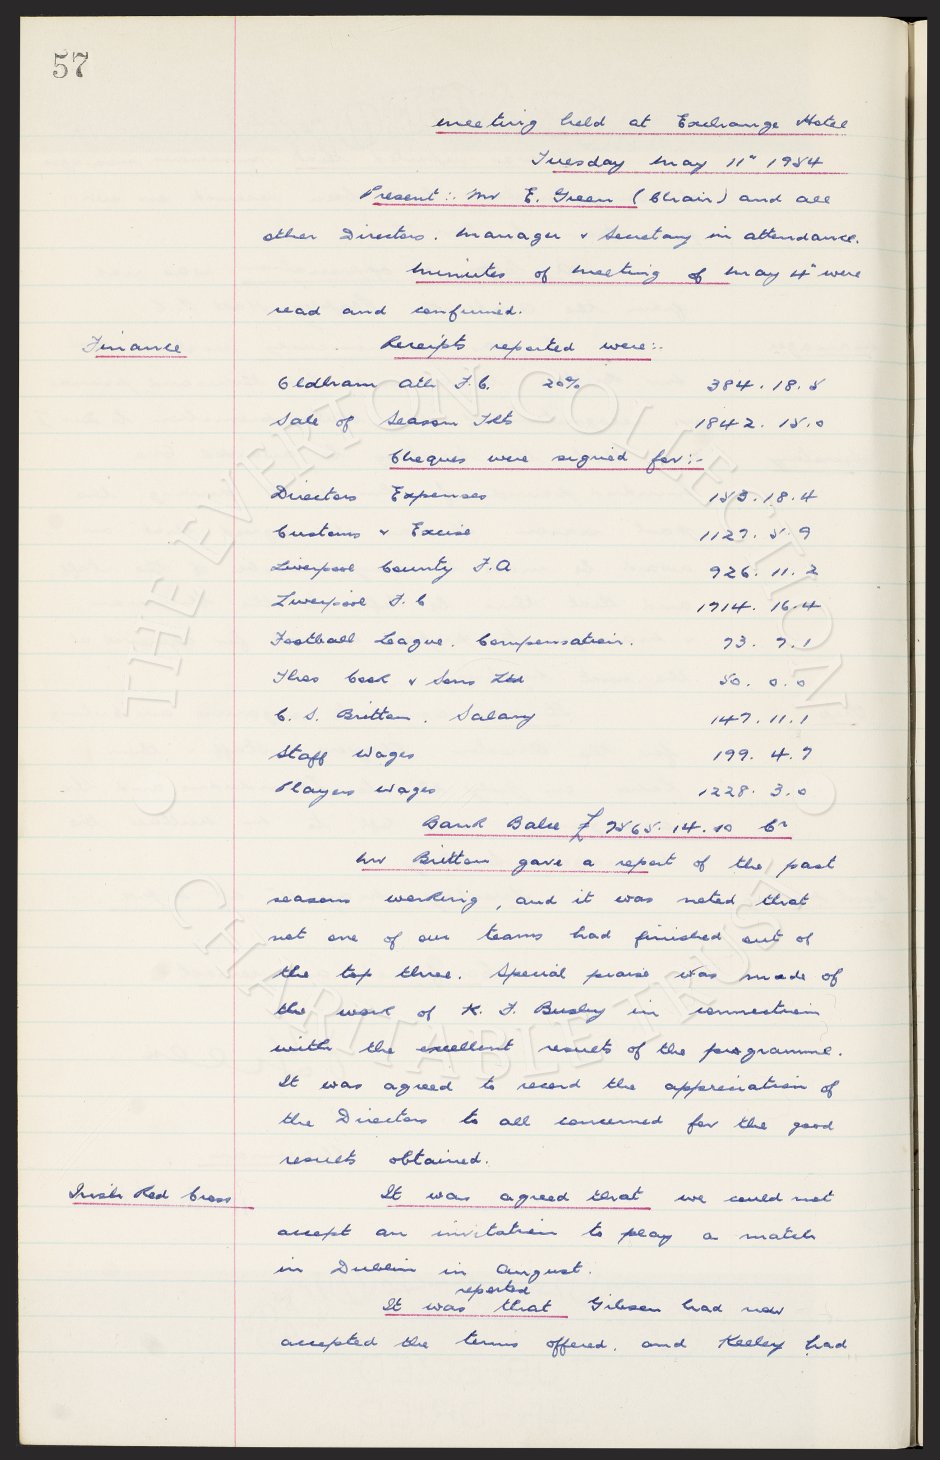 57
meeting held at Exchange Hotel
Tuesday May 11" 1954
Present:. Mr E. Green (Chair) and all
other Directors. Manager & Secretary in attendance.
Minutes of meeting of May 4" were
read and confirmed.
Finance
Receipts reported were:.
Oldham Ath F.C. 20% 384. 18. 5
Sale of Season Tkts 1842. 15. 0
Cheques were signed for:-
Directors Expenses 153. 18. 4
Customs & Excise 1127. 5. 9
Liverpool County F.A 926. 11. 2
Liverpool F.C 1714. 16. 4
Football League. Compensation. 73. 7. 1
Thos Cook & Sons Ltd 50. 0. 0
C. S. Britton. Salary 147. 11. 1
Staff Wages 199. 4. 7
Players Wages 1228. 3. 0
Bank Balce £7565. 14. 10 Cr
Mr Britton gave a report of the past
seasons working, and it was noted that
not one of our teams had finished out of
the top three. Special praise was made of
the work of K. F. Busby in connection
with the excellent results of the programme.
It was agreed to record the appreciation of
the Directors to all concerned for the good
results obtained.
Irish Red Cross
It was agreed that we could not
accept an invitation to play a match
in Dublin in August.
It was reported that Gibson had now
accepted the terms offered. and Keeley had
THE EVERTON COLLECTION
CHARITABLE TRUST